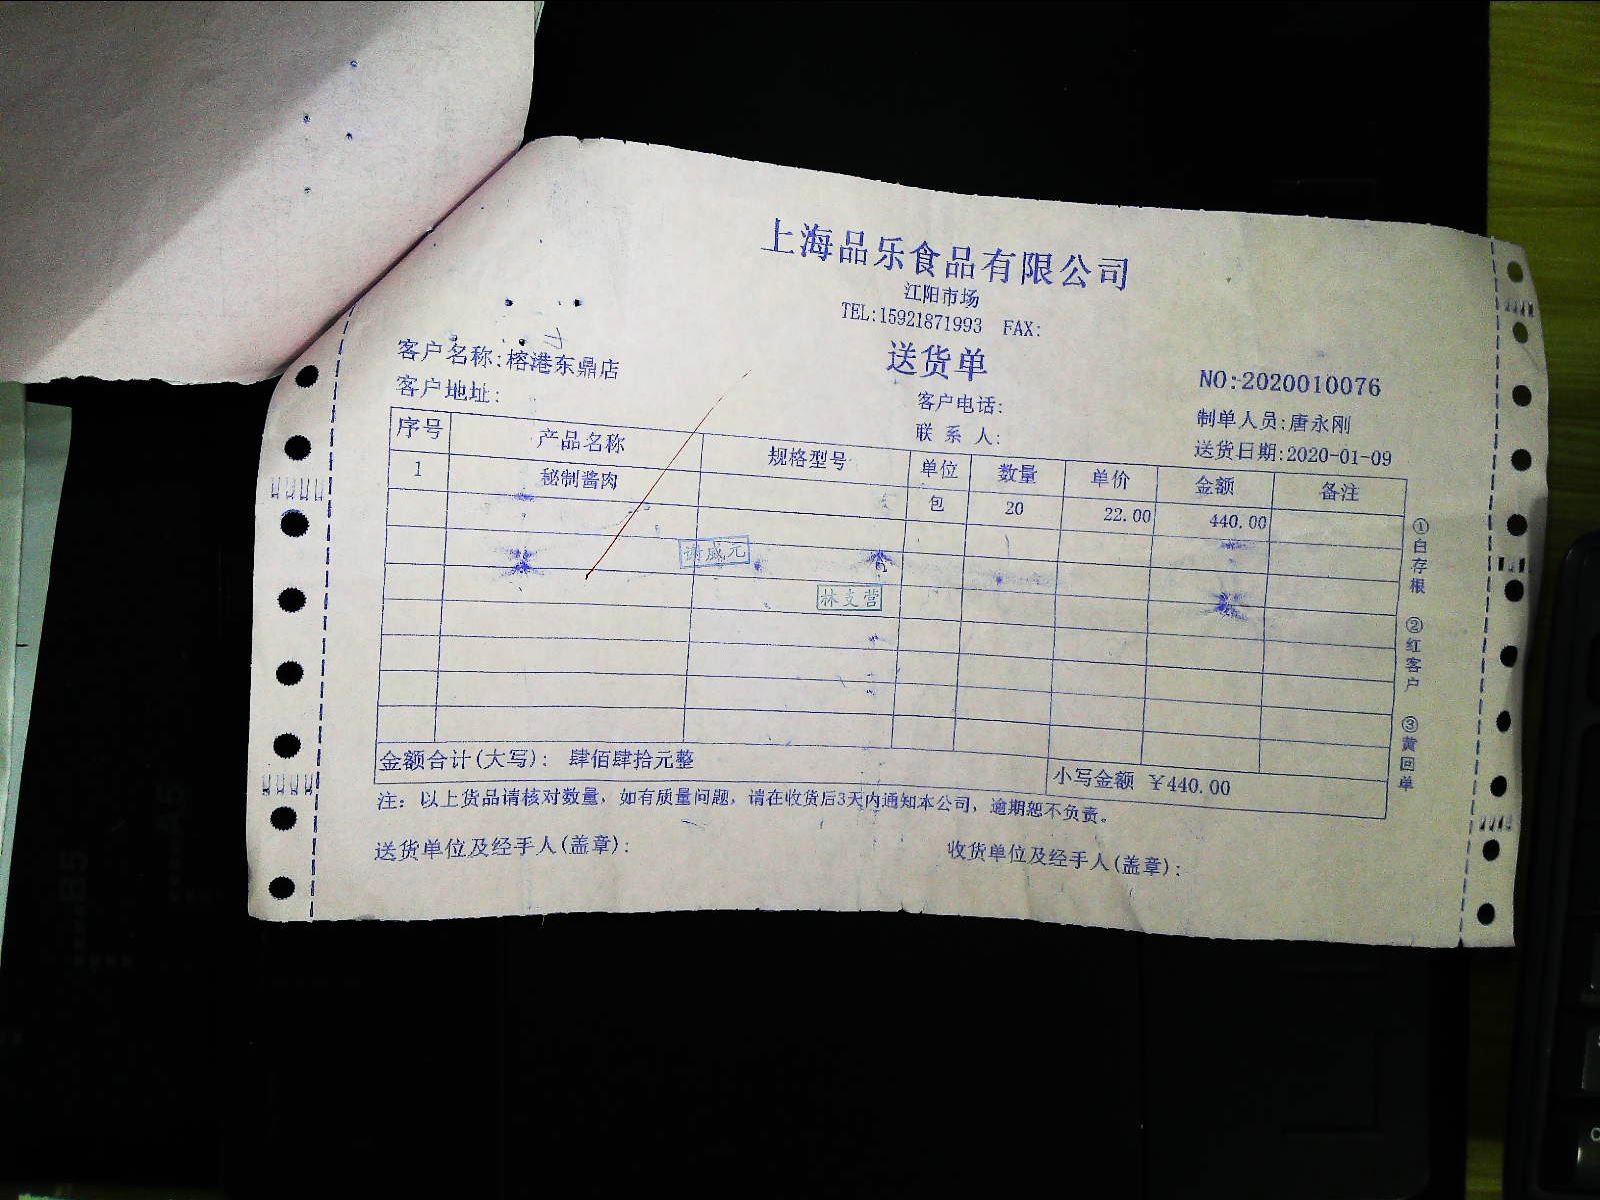 上海品乐食品有限公司
江阳市场
TEL:15921871993 FAX:
送货单
客户名称:榕港东鼎店
NO:2020010076
客户地址:
客户电话:
制单人员:唐永刚
联 系 人:
送货日期:2020-01-09
序号 产品名称 规格型号 单位 数量 单价 金额 备注
1 秘制酱肉 包 20 22.00 440.00
林支营
金额合计(大写): 肆佰肆拾元整
小写金额 ¥440.00
注: 以上货品请核对数量, 如有质量问题, 请在收货后3天内通知本公司, 逾期恕不负责。
送货单位及经手人(盖章):
收货单位及经手人(盖章):
①白存根 ②红客户 ③黄回单